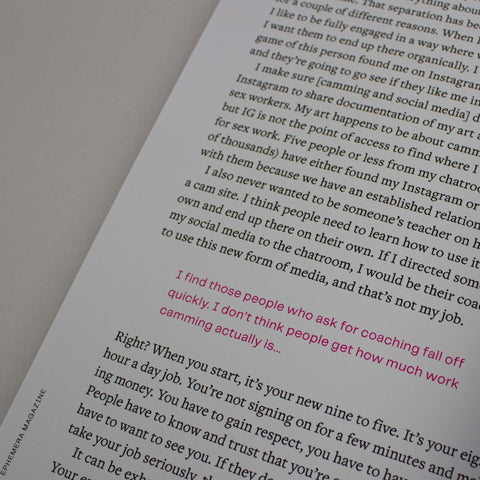 everything about
life. That separation has bee
for a couple of different reasons. When I
I like to be fully engaged in a way where v
I want them to end up there organically. I
game of this person found me on Instagram
and they're going to go see if they like me in
I make sure [camming and social media] d
Instagram to share documentation of my art a
sex workers. My art happens to be about camm
but IG is not the point of access to find where I
for sex work. Five people or less from my chatroo
of thousands) have either found my Instagram or
with them because we have an established relation
I also never wanted to be someone's teacher on h
a cam site. I think people need to learn how to use it
own and end up there on their own. If I directed som
my social media to the chatroom, I would be their coa
to use this new form of media, and that's not my job.
I find those people who ask for coaching fall off
quickly. I don't think people get how much work
camming actually is...
Right? When you start, it's your new nine to five. It's your eig
hour a day job. You're not signing on for a few minutes and ma
ing money. You have to gain respect, you have to hav
People have to know and trust that you're
have to want to see you. If they do
take your job seriously, th
It can be exh
Your e
EPHEMERA MAGAZINE